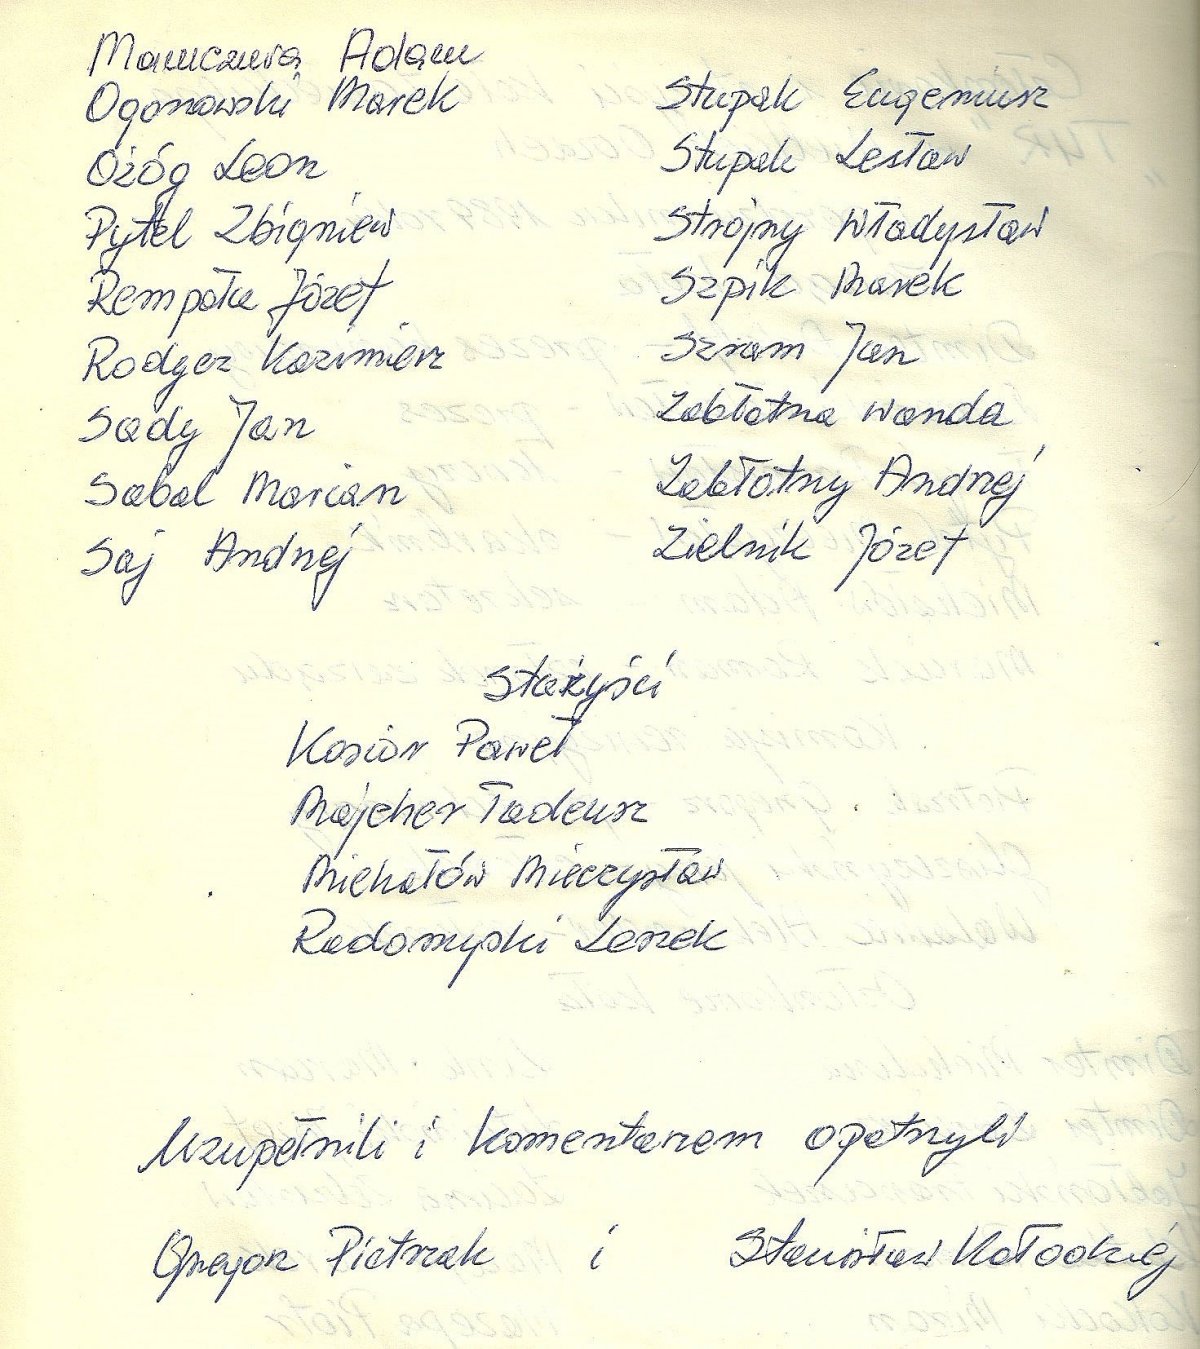 Adam
Ogonowski Marek
Ożóg Leon
Pytel Zbigniew
Rempała Józef
Rodger Kazimierz
Sady Jan
Sabal Marian
Saj Andrzej
Stupak Eugeniusz
Stupak Lesław
Strojny Władysław
Szpik Marek
Szram Jan
Zabłotna Wanda
Zabłotny Andrzej
Zielnik Józef
Stażyści
Kosior Paweł
Majcher Tadeusz
Michałów Mieczysław
Radomyski Leszek
Uzupełnili i komentarzem opatrzyli
Grzegorz Pietrzak i Stanisław Kołodziej